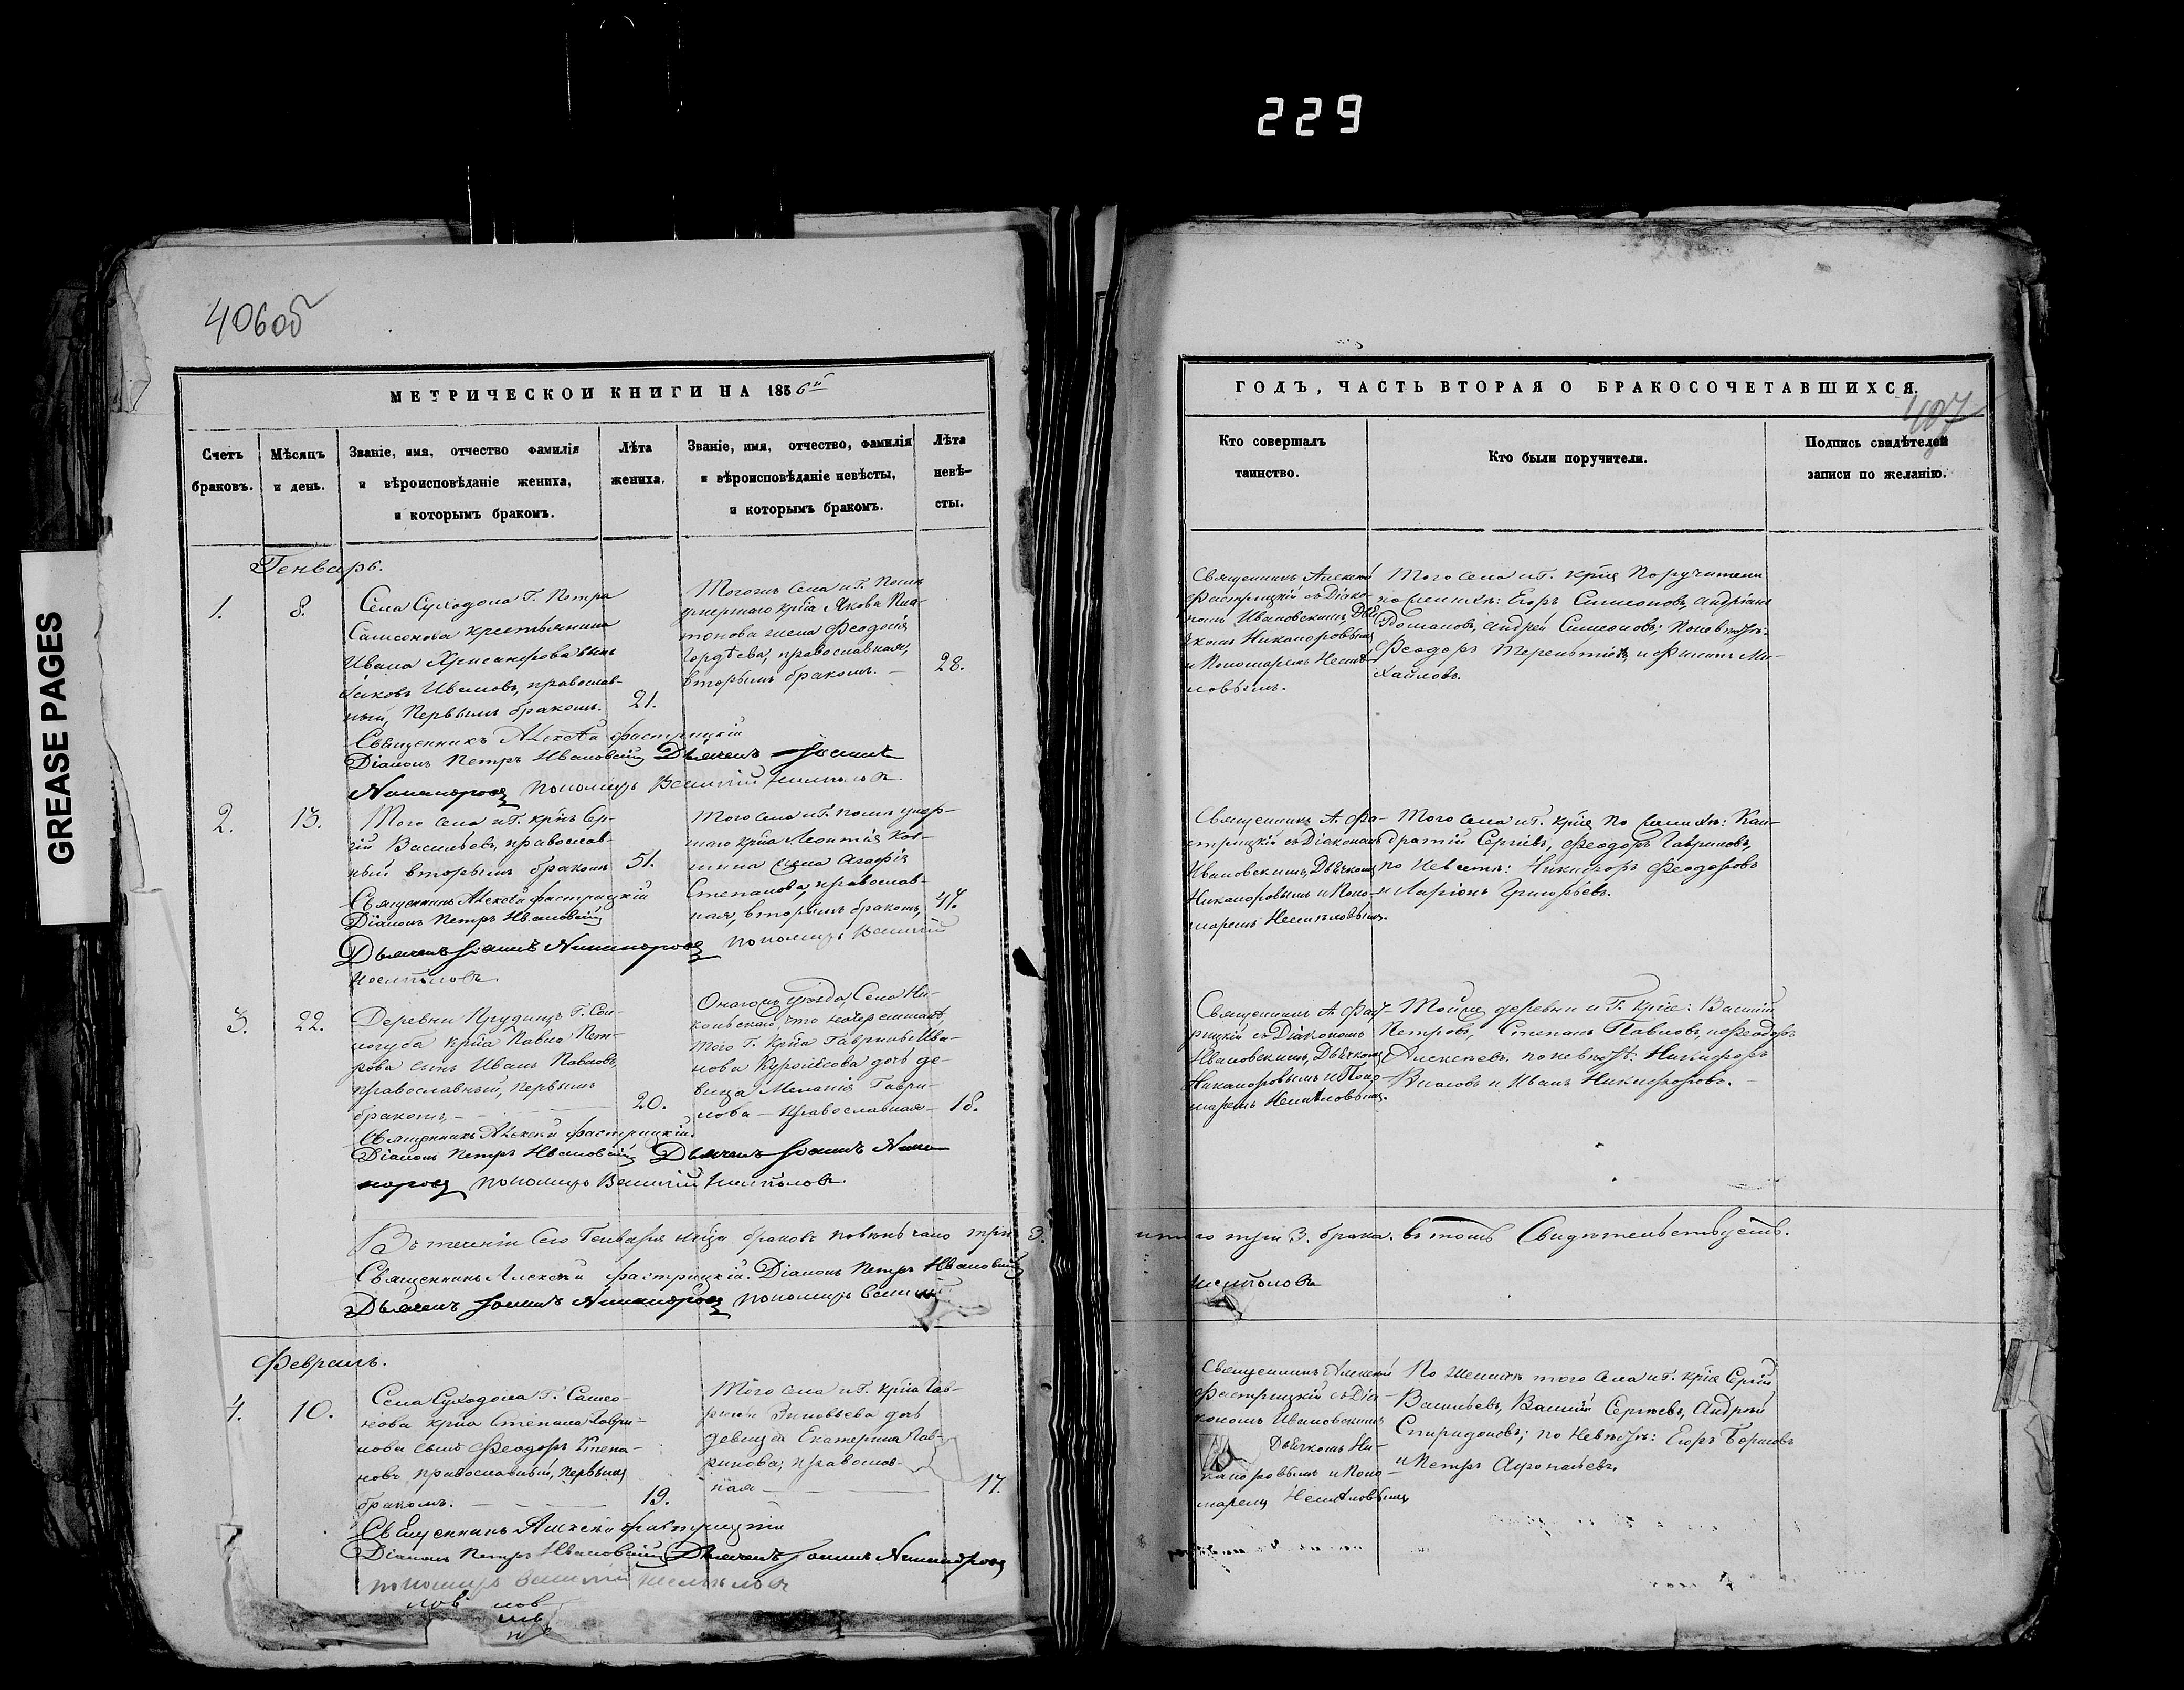 229
GREASE PAGES
406об
МЕТРИЧЕСКОЙ КНИГИ НА 1856й
Счетъ браковъ.
Мѣсяцъ и день.
Званіе, имя, отчество фамилія
и вѣроисповѣданіе жениха,
и которымъ бракомъ.
Лѣта
жениха.
Званіе, имя, отчество, фамилія
и вѣроисповѣданіе невѣсты,
и которымъ бракомъ.
Лѣта
невѣ-
сты.
Генварь.
1.
8.
Села Суходола Г. Петра
Самсонова крестьянина
Ивана Хрисанфова сынъ
Яковъ Ивановъ, православ-
ный, первымъ бракомъ.
21.
Тогожъ села и Г. послѣ
умершаго крѣа Якова Пла-
тонова жена Феодосія
Гордѣева, православная,
вторымъ бракомъ.
28.
Священникъ Алексѣй Фастрицкій
Діаконъ Петръ Ивановскій Дьячекъ Іоаннъ
Никаноровъ пономарь Василій
2.
13.
Того села и Г. крѣнъ Сер-
гій Васильевъ, православ-
ный вторымъ бракомъ
51.
Того села и Г. послѣ умер-
шаго крѣа Леонтія
жена Агафія
Степанова, православ-
ная, вторымъ бракомъ,
47.
Священникъ Алексѣй Фастрицкій
Діаконъ Петръ Ивановскій
Дьячекъ Іоаннъ Никаноровъ пономарь Василій
3.
22.
Деревни Прудищъ Г. Сон-
цова крѣа Павла Пет-
рова сынъ Иванъ Павловъ,
православный, первымъ
бракомъ,
20.
Онагожъ уѣзда, Села Ни-
кольскаго, что
того Г. крѣа Гавріила Ива-
нова дочь дѣ-
вица Меланія Гаври-
лова - православная -
18.
Священникъ Алексѣй Фастрицкій.
Діаконъ Петръ Ивановскій Дьячекъ Іоаннъ Ника-
норовъ пономарь Василій
Въ теченіи сего Генваря мѣца браковъ повѣнчано три 3.
Священникъ Алексѣй Фастрицкій. Діаконъ Петръ Ивановскій
Дьячекъ Іоаннъ Никаноровъ пономарь Василій
Февраль.
4.
10.
Села Суходола Г. Самсо-
нова крѣа Степана Гаври-
лова сынъ Феодоръ Степа-
новъ православный, первымъ
бракомъ.
19.
Того села и Г. крѣа Гав-
рилы Зиновьева дочь
дѣвица Екатерина Гав-
рилова, православ-
ная
17.
Священникъ Алексѣй Фастрицкій
Діаконъ Петръ Ивановскій Дьячекъ Іоаннъ Никаноровъ
пономарь Василій
ГОДЪ, ЧАСТЬ ВТОРАЯ О БРАКОСОЧЕТАВШИХСЯ.
407
Кто совершалъ
таинство.
Кто были поручители.
Подпись свидѣтелей
записи по желанію.
Священникъ Алексѣй
Фастрицкій съ Діако-
номъ Ивановскимъ, Дья-
чкомъ Никаноровымъ
и Пономаремъ
Того села и Г. крѣя поручители
по женихѣ: Егоръ Симеоновъ, Андріанъ
Романовъ, Андрей Симеоновъ; по невѣстѣ:
Феодоръ Терентіевъ, и Филиппъ Ми-
хайловъ.
Священникъ А. Фа-
стрицкій съ Діакономъ
Ивановскимъ, Дьячкомъ
Никаноровымъ и Поно-
маремъ
Того села и Г. крѣя по женихѣ: Кон-
дратій Сергѣевъ, Феодоръ Гавриловъ,
по невѣстѣ: Никифоръ Феодоровъ
и Ларіонъ Григорьевъ.
Священникъ А. Фаст-
рицкій съ Діакономъ
Ивановскимъ, Дьячкомъ
Никаноровымъ и Поно-
маремъ
Тойже деревни и Г. крѣя: Василій
Петровъ, Степанъ Павловъ, и Феодоръ
Алексѣевъ. по невѣстѣ: Никифоръ
Власовъ и Иванъ Никифоровъ.
итого три 3. брака. въ томъ свидѣтельствуемъ.
Священникъ Алексѣй
Фастрицкій съ Діа-
кономъ Ивановскимъ
Дьячкомъ Ни-
каноровымъ и Поно-
маремъ
По женихѣ того села и Г. крѣя Сергій
Васильевъ, Василій Сергѣевъ, Андрей
Спиридоновъ; по невѣстѣ: Егоръ Борисовъ
и Петръ